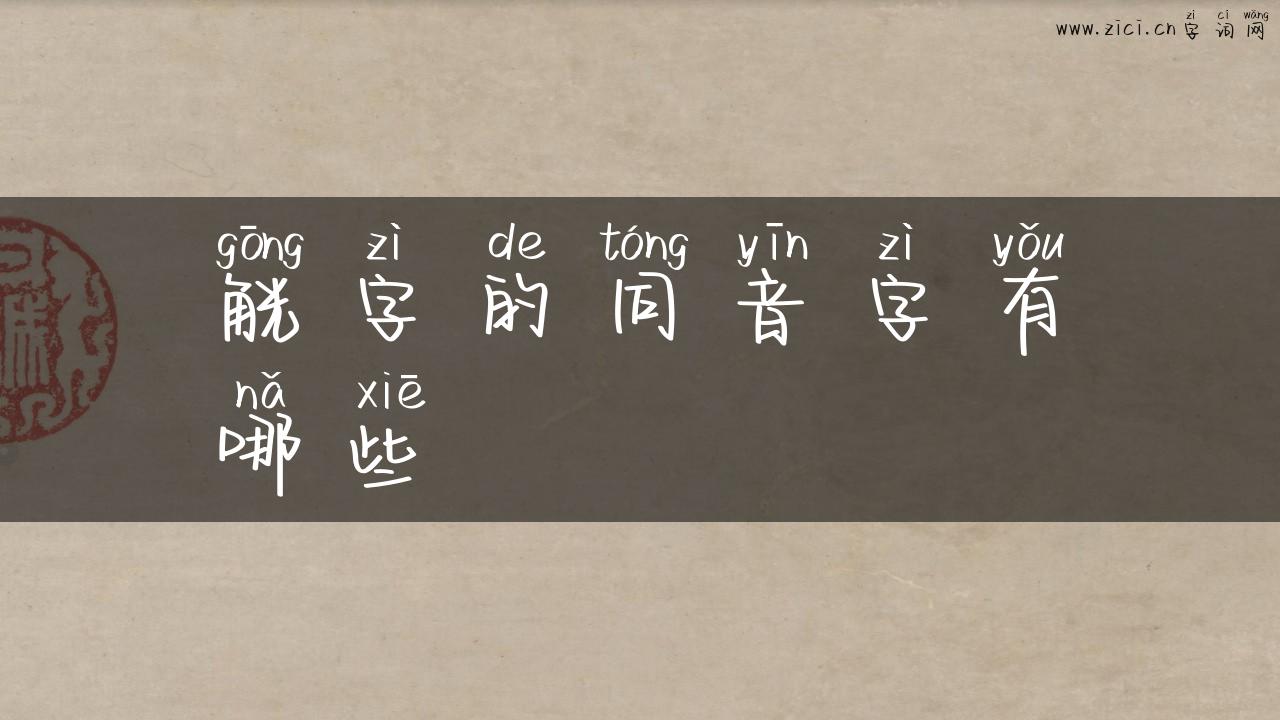 zì cí wǎng
www.zici.cn 字 词 网
gōng zì de tóng yīn zì yǒu
觥 字 的 同 音 字 有
nǎ xiē
哪 些